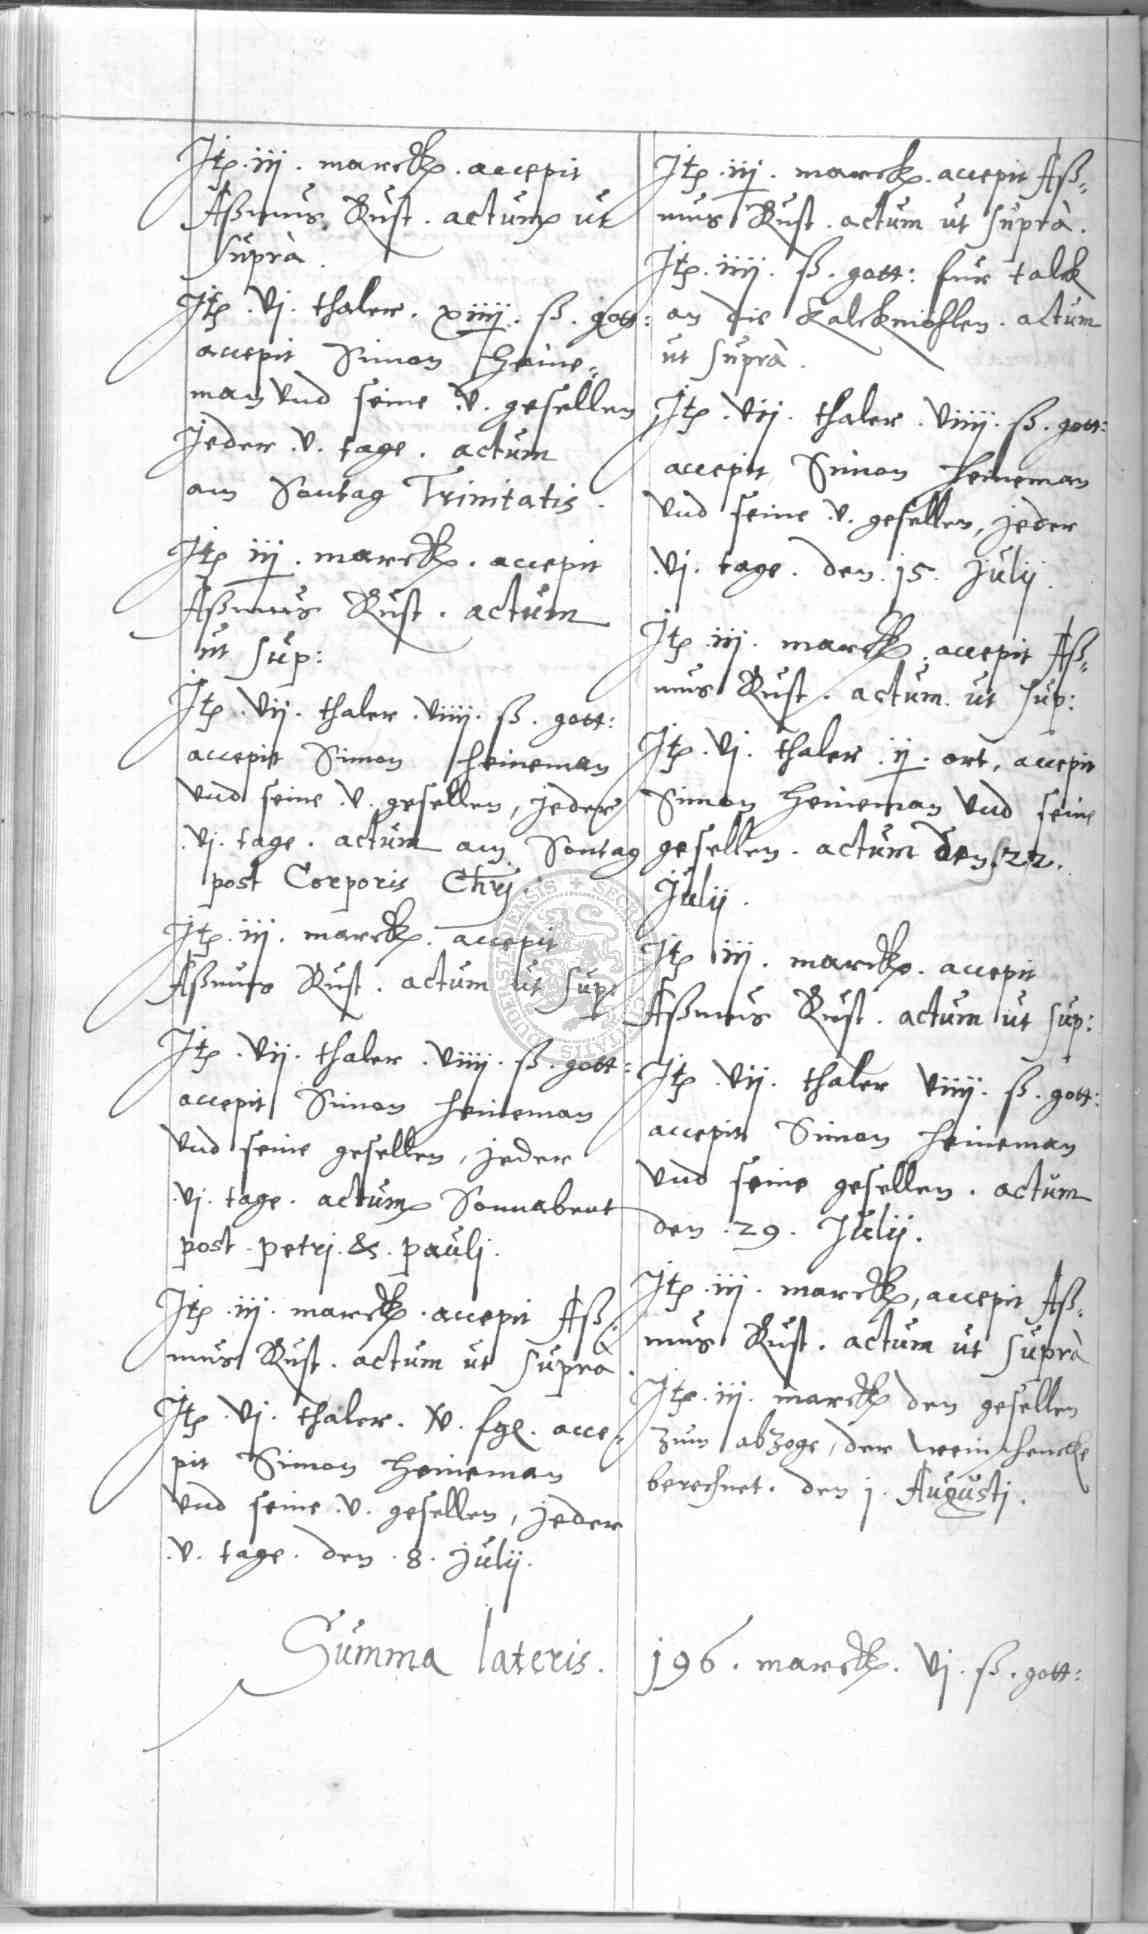 Itp. iij. marck. accepit
Aßmus Rust. actum ut
suprà.
Itp. vj. thaler. xiiij. ß. gott:
accepit Simon Heine-
man und seine .v. gesellen
Jeder .v. tage. actum
am Sontag Trinitatis.
Itp iij. marck. accepit
Aßmus Rust. actum
ut sup:
Itp. vij. thaler. viiij. ß. gott:
accepit Simon Heineman
und seine .v. gesellen, jeder
.vj. tage. actum am Sontag
post Corporis Chrj.
Itp. iij. marck. accepit
Aßmus Rust. actum ut sup:
Itp. vij. thaler. viiij. ß. gott:
accepit Simon Heineman
und seine gesellen, jeder
.vj. tage. actum Sonnabent
post. petrj. &. paulj.
Itp. iij. marck. accepit Aß-
mus Rust. actum ut suprà.
Itp. vj. thaler. v. sgl. acce-
pit Simon Heineman
und seine .v. gesellen, jeder
.v. tage. den .8. Julij.
Itp. iij. marck. accepit Aß-
mus Rust. actum ut suprà.
Itp. iiij. ß. gott: fur talck
an die actum
ut suprà.
Itp. vij. thaler. viiij. ß. gott:
accepit Simon Heineman
und seine .v. gesellen, jeder
.vj. tage. den. 15. Julij.
Itp. iij. marck. accepit Aß-
mus Rust. actum ut sup:
Itp. vj. thaler .ij. ort, accepit
Simon Heineman und seine
gesellen. actum den 22.
Julij.
Itp iij. marck. accepit
Aßmus Rust. actum ut sup:
Itp. vij. thaler viiij. ß. gott:
accepit Simon Heineman
und seine gesellen. actum
den .29. Julij.
Itp. iij. marck, accepit Aß-
mus Rust. actum ut suprà
Itp. iij. marck den gesellen
zum abzoge, der weinschencke
berechnet. den j. Augustj.
Summa lateris. 196. marck. vj. ß. gott: